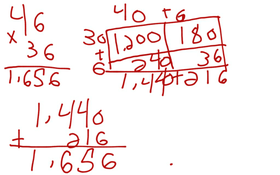 46
× 36
1,656
40 + 6
30 1200 180
+
6 240 36
1,440+216
1,440
+ 216
1,656